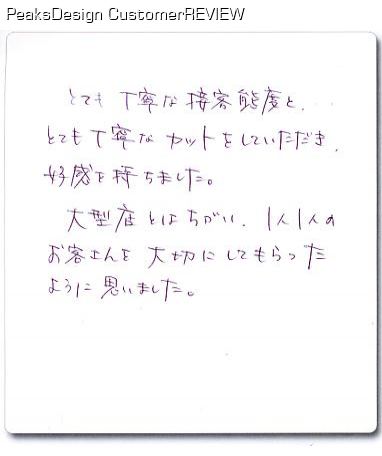 PeaksDesign CustomerREVIEW
とても丁寧な接客態度と、
とても丁寧なカットをしていただき、
好感を持ちました。
大型店とはちがい、1人1人の
お客さんを大切にしてもらった
ように思いました。